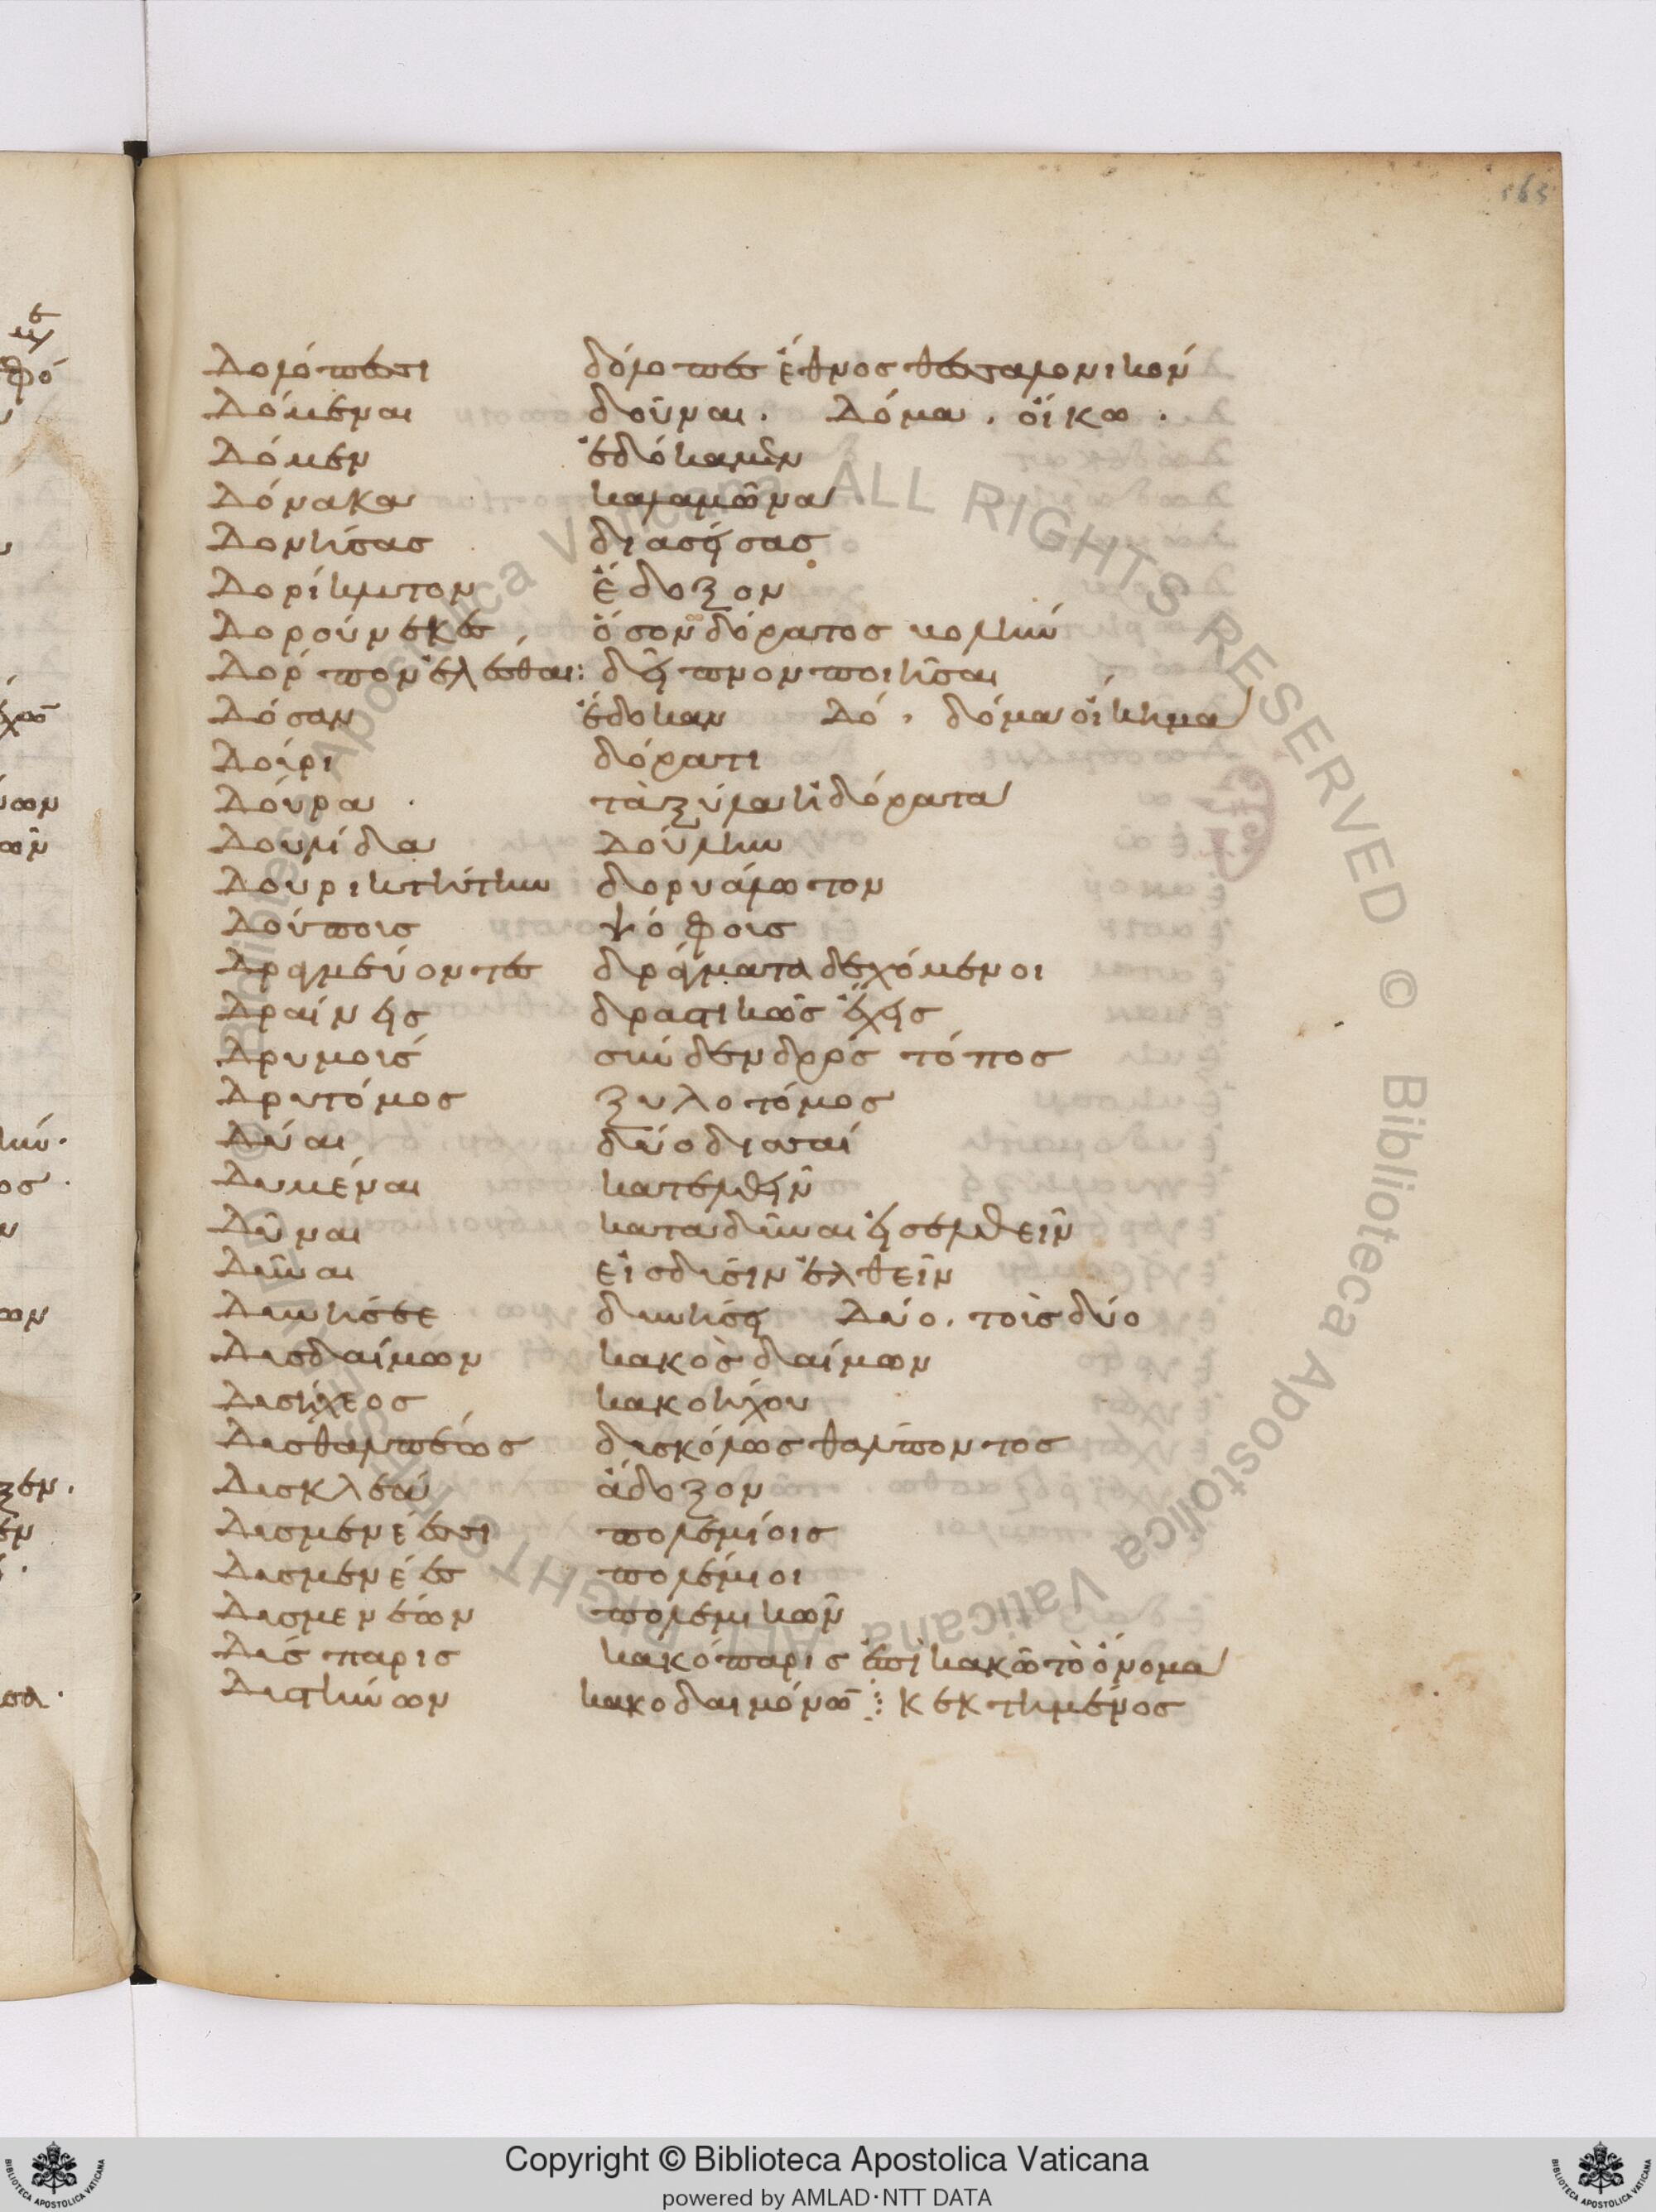 163
Δολόπεσσι δόλοπες ἔθνος θεσσαλονικὸν
Δόμεναι δοῦναι. Δόμω. οἴκω.
Δόμεν ἐδόκαμεν
Δόνακα καλαμῶνα
Δονήσας διασείσας
Δορίκλυτον ἔδοξον
Δορούνεκες, ὅσον δόρατος βολήν
Δόρπον ἑλέσθαι: δεῖπνον ποιῆσαι
Δόσαν ἔδοκαν Δό. δόμα οἴκημα
Δοίρι δόρατι
Δούρα. τὰ ξύλα ἢ δόρατα
Δουλίδα δούλην
Δουρικτήτην δορυάλωτον
Δούποις ψόφοις
Δραγμεύοντες δράγματα δεχόμενοι
Δραίνεις δραστικῶς ἔχεις
Δρυμοισ σύνδενδρος τόπος
Δρυτόμος ξυλοτόμος
Δύαι δύο διαται
Δυμέναι κατελθεῖν
Δῦναι καταδῦναι εἰσελθεῖν
Δῦναι εἰσδύσιν ἐλθεῖν
Δυνήσεε δυνήσει Δύο. τοὶς δύο
Δυσδαίμων κακὸς δαίμων
Δυσήχεος κακοήχου
Δυσθαλπέως δυσκόλως θαλποντος
Δυσκλέα ἄδοξον
Δυσμενέεσσι πολεμίοις
Δυσμενέες πολέμιοι
Δυσμενέων πολεμικῶν
Δύσπαρις κακόπαρις ἐπὶ κακῶ τὸ ὄνομα
Δυστήνων κακοδαιμόνων κεκτημένος
Copyright © Biblioteca Apostolica Vaticana
powered by AMLAD·NTT DATA